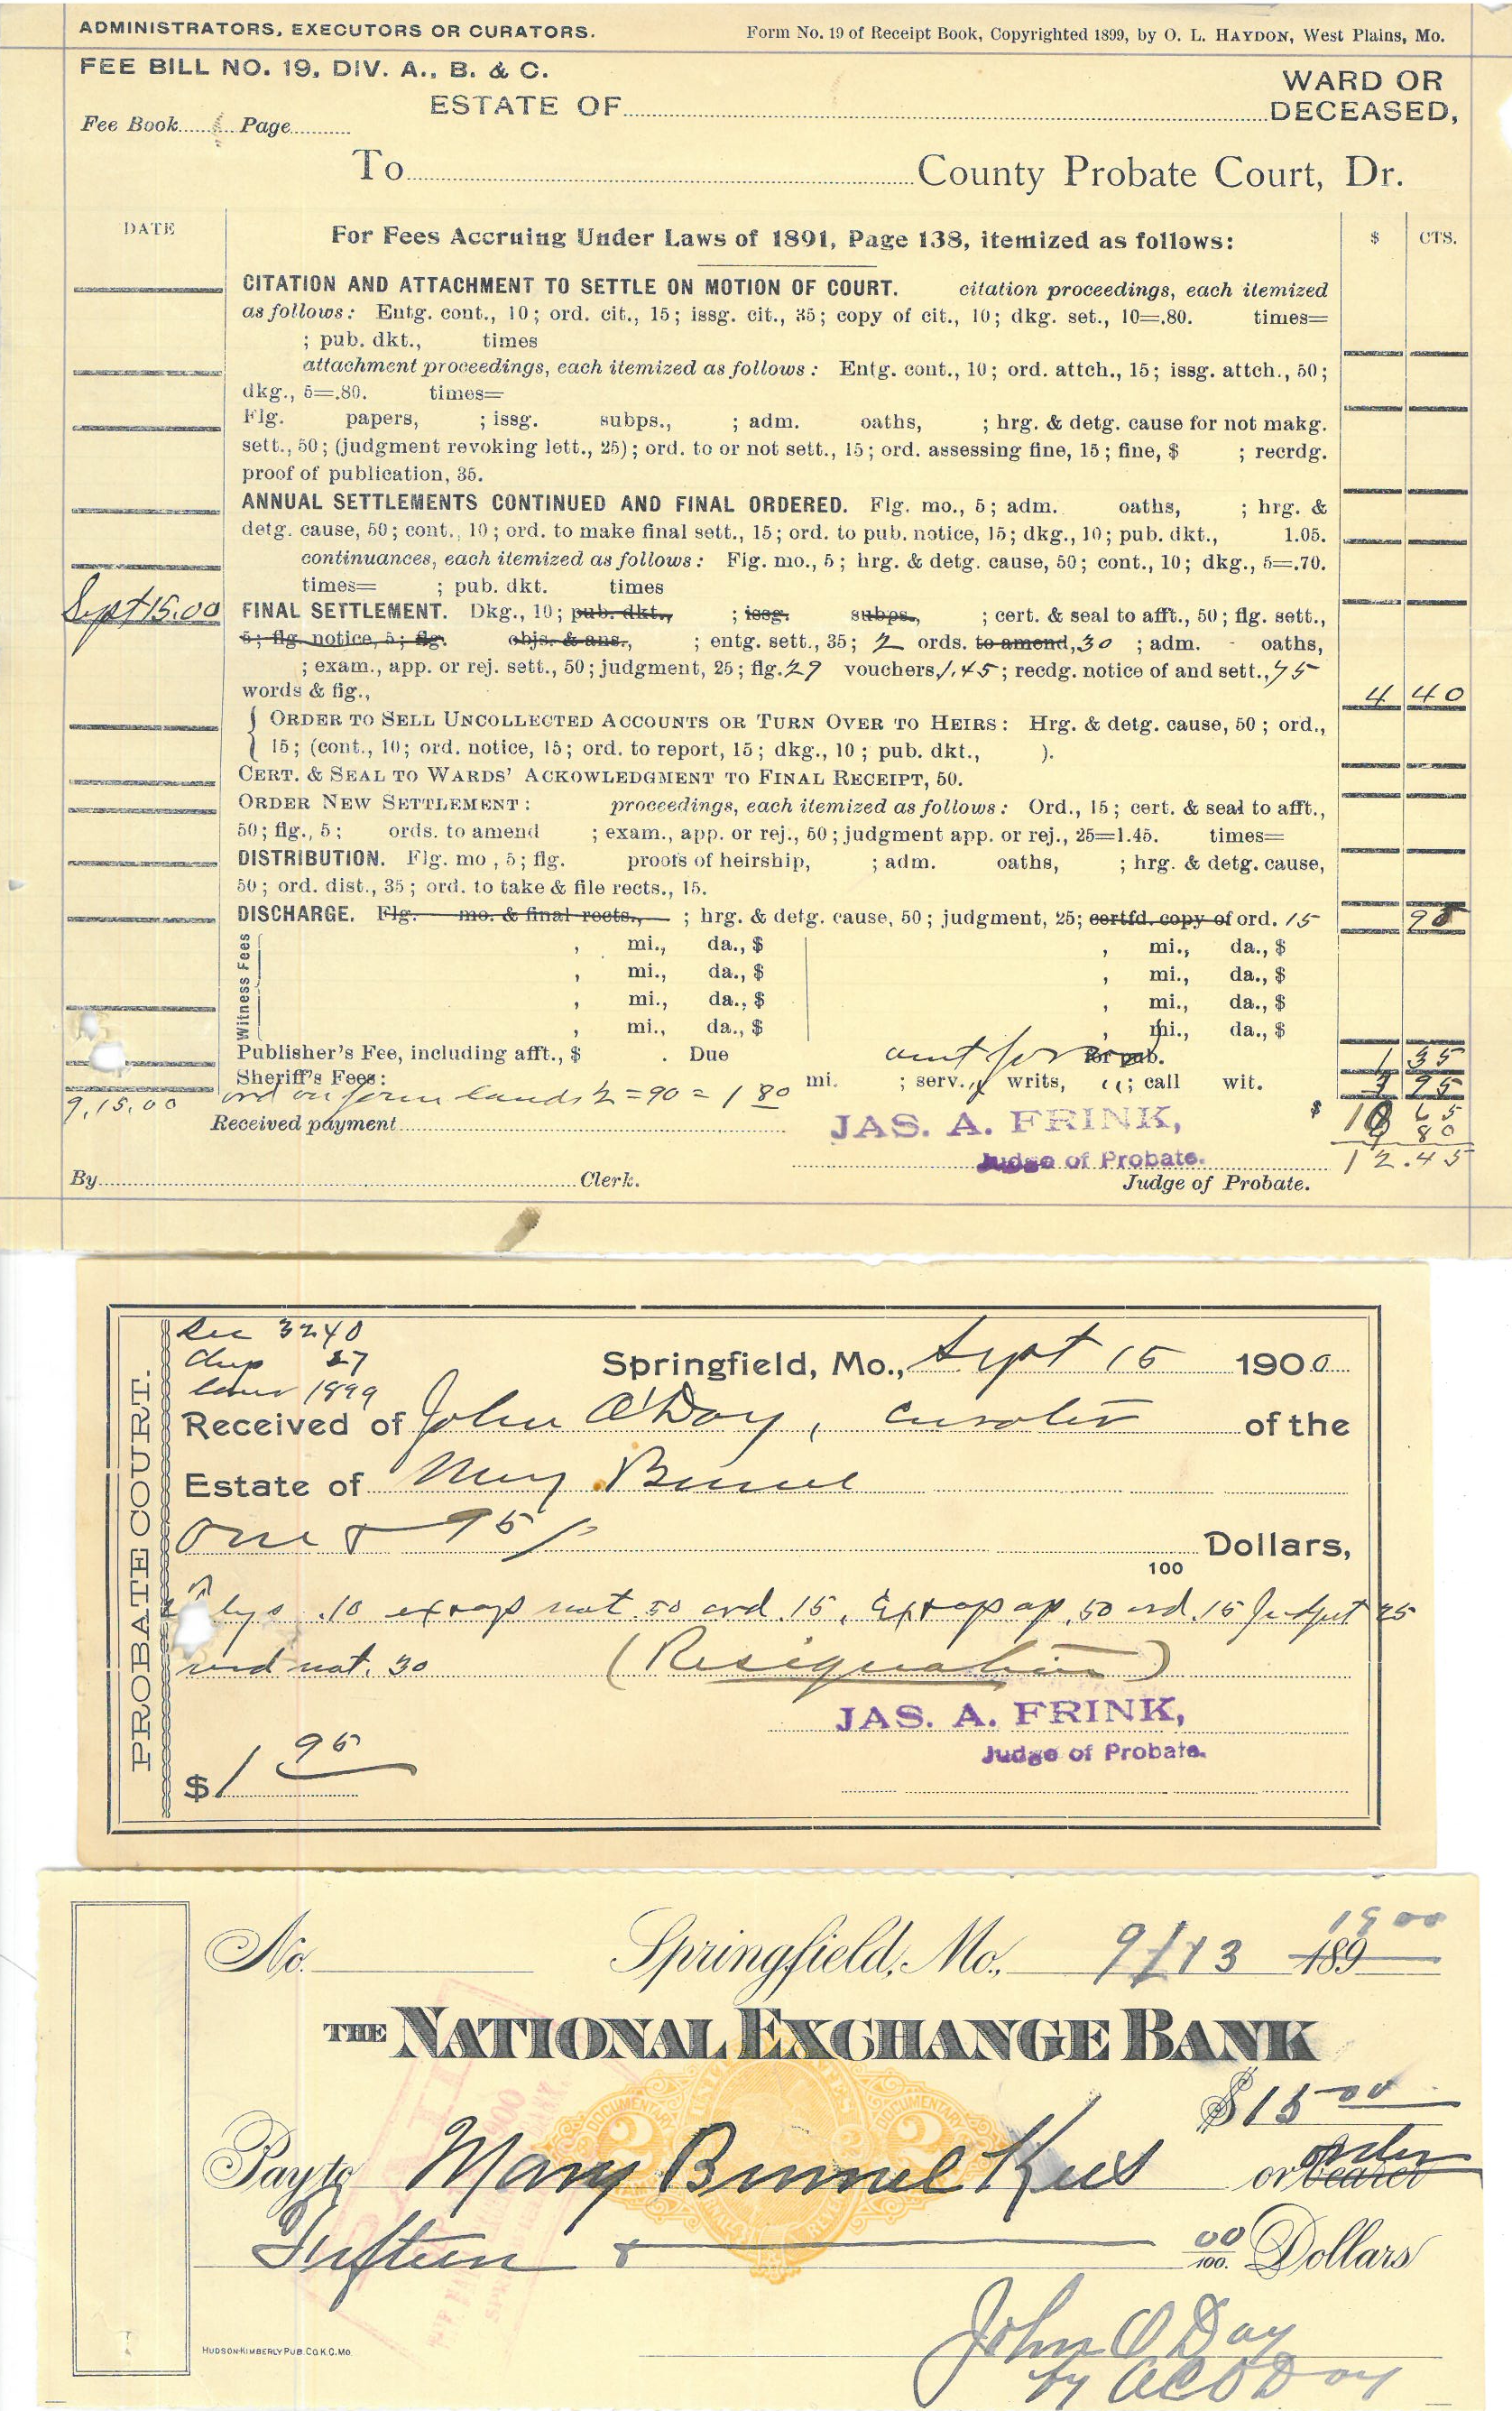 ADMINISTRATORS, EXECUTORS OR CURATORS. Form No. 19 of Receipt Book, Copyrighted 1899, by O. L. HAYDON, West Plains, Mo.
FEE BILL NO. 19, DIV. A., B. & C.
WARD OR
ESTATE OF DECEASED,
Fee Book Page
To County Probate Court, Dr.
DATE For Fees Accruing Under Laws of 1891, Page 138, itemized as follows: $ CTS.
CITATION AND ATTACHMENT TO SETTLE ON MOTION OF COURT. citation proceedings, each itemized
as follows: Entg. cont., 10; ord. cit., 15; issg. cit., 35; copy of cit., 10; dkg. set., 10=.80. times=
; pub. dkt., times
attachment proceedings, each itemized as follows: Entg. cont., 10; ord. attch., 15; issg. attch., 50;
dkg., 5=.80. times=
Flg. papers, ; issg. subps., ; adm. oaths, ; hrg. & detg. cause for not makg.
sett., 50; (judgment revoking lett., 25); ord. to or not sett., 15; ord. assessing fine, 15; fine, $ ; recrdg.
proof of publication, 35.
ANNUAL SETTLEMENTS CONTINUED AND FINAL ORDERED. Flg. mo., 5; adm. oaths, ; hrg. &
detg. cause, 50; cont., 10; ord. to make final sett., 15; ord. to pub. notice, 15; dkg., 10; pub. dkt., 1.05.
continuances, each itemized as follows: Flg. mo., 5; hrg. & detg. cause, 50; cont., 10; dkg., 5=.70.
times= ; pub. dkt. times
Sept 15.00 FINAL SETTLEMENT. Dkg., 10; pub. dkt., ; issg. subps., ; cert. & seal to afft., 50; flg. sett.,
5; flg. notice, 5; flg. objs. & ans., ; entg. sett., 35; 2 ords. to amend, 30 ; adm. oaths,
; exam., app. or rej. sett., 50; judgment, 25; flg. 29 vouchers, 1.45; recdg. notice of and sett., 75
words & fig., 4 40
ORDER TO SELL UNCOLLECTED ACCOUNTS OR TURN OVER TO HEIRS: Hrg. & detg. cause, 50; ord.,
15; (cont., 10; ord. notice, 15; ord. to report, 15; dkg., 10; pub. dkt., ).
CERT. & SEAL TO WARDS' ACKOWLEDGMENT TO FINAL RECEIPT, 50.
ORDER NEW SETTLEMENT: proceedings, each itemized as follows: Ord., 15; cert. & seal to afft.,
50; flg., 5; ords. to amend ; exam., app. or rej., 50; judgment app. or rej., 25=1.45. times=
DISTRIBUTION. Flg. mo., 5; flg. proofs of heirship, ; adm. oaths, ; hrg. & detg. cause,
50; ord. dist., 35; ord. to take & file rects., 15.
DISCHARGE. Flg. mo. & final rects., ; hrg. & detg. cause, 50; judgment, 25; certfd. copy of ord. 15
Witness Fees
, mi., da., $ , mi., da., $
, mi., da., $ , mi., da., $
, mi., da., $ , mi., da., $
, mi., da., $ , mi., da., $
Publisher's Fee, including afft., $ . Due amt for for pub. 1 35
Sheriff's Fees: mi. ; serv., writs, ; call wit. 95
9,15,00 lands 2 = 90 = 1 80
Received payment JAS. A. FRINK, $ 10 65
Judge of Probate. 80
12.45
By Clerk. Judge of Probate.
PROBATE COURT.
Sec 3240
27
1899
Springfield, Mo., Sept 15 1900
Received of John O'Day, curator of the
Estate of Mary Bunnel
One & 95/100 Dollars,
.10 not. 50 ord. 15, ap. 50 ord. 15 Judgmt 25
not. 30 (Resignation)
JAS. A. FRINK,
Judge of Probate.
$1 95
No. Springfield, Mo., 9/13 1900 189
THE NATIONAL EXCHANGE BANK
$15 00
DOCUMENTARY 2 DOCUMENTARY 2
Pay to Mary Bunnel Kees or bearer order
Fifteen & 00/100. Dollars
John O Day
by
HUDSON-KIMBERLY PUB. CO. K.C. MO.